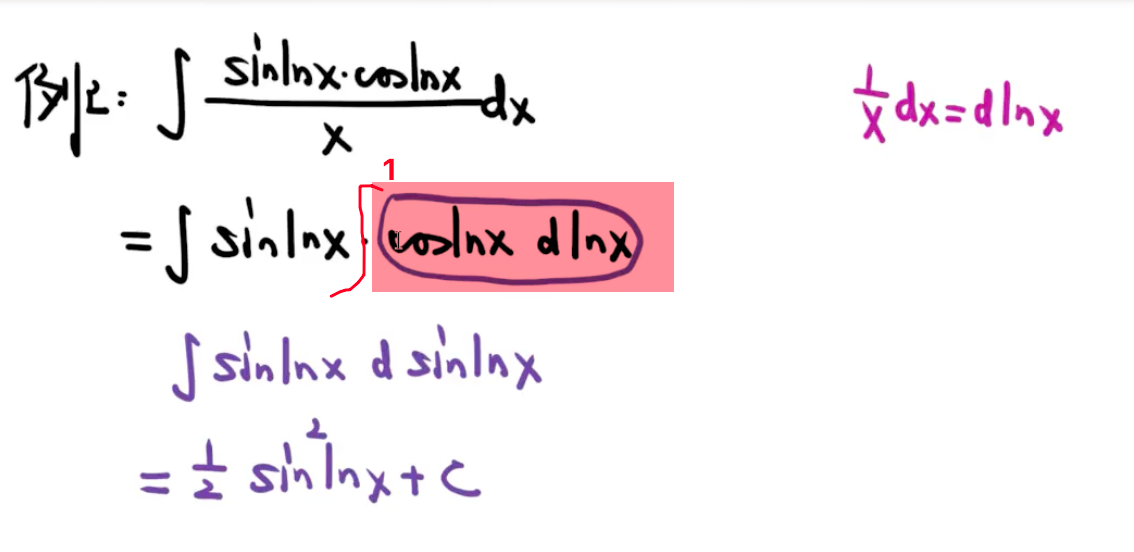 例2: ∫ sinlnx·coslnx / x dx
1/x dx = dlnx
1
= ∫ sinlnx · coslnx dlnx
∫ sinlnx d sinlnx
= 1/2 sin²lnx + C